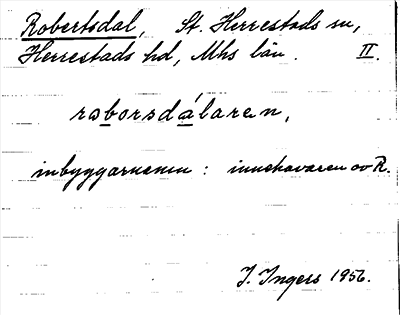 Robertsdal, St. Herrestads sn,
Herrestads hd, Mhs län. II.
roborsdálaren,
inbyggarnamn: innehavaren av R.
I. Ingers 1956.